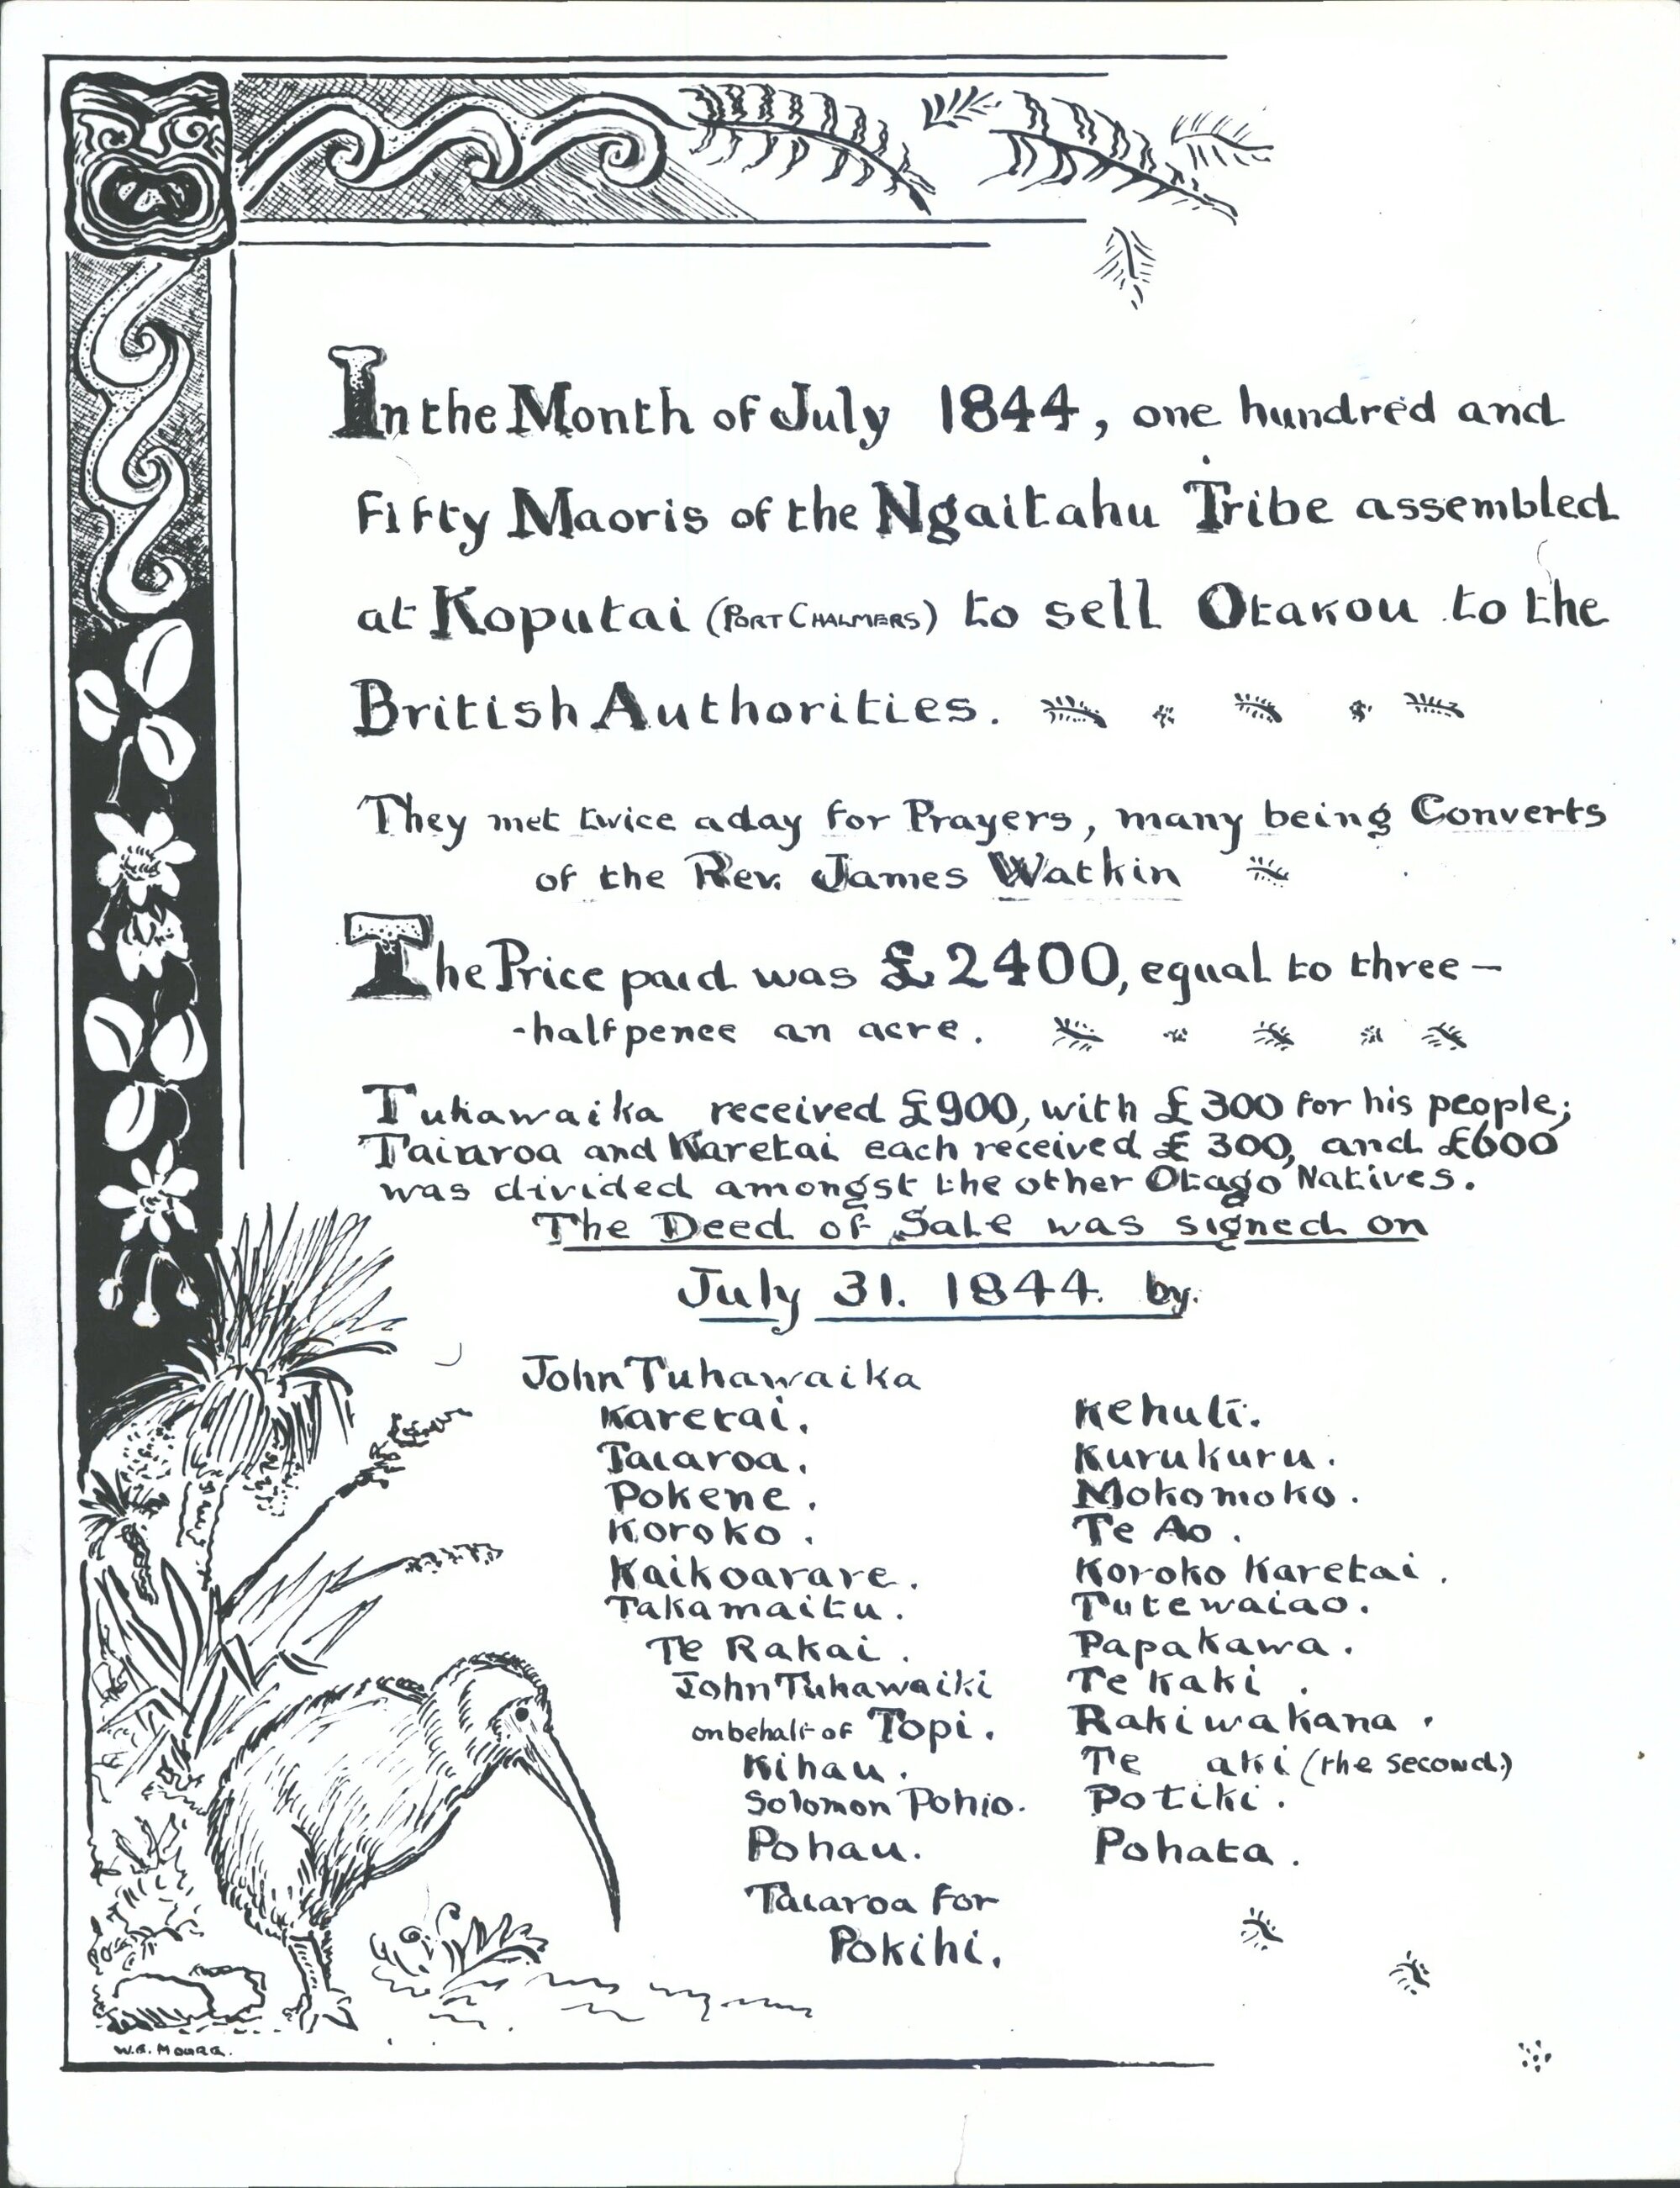 In the Month of July 1844, one hundred and
Fifty Maoris of the Ngaitahu Tribe assembled
at Koputai (PORT CHALMERS) to sell Otakou to the
British Authorities.
They met twice a day for Prayers, many being Converts
of the Rev. James Watkin
The Price paid was £2400, equal to three-
-halfpence an acre.
Tuhawaika received £900, with £300 for his people;
Taiaroa and Karetai each received £300, and £600
was divided amongst the other Otago Natives.
The Deed of Sale was signed on
July 31. 1844. by.
John Tuhawaika
Karetai.
Taiaroa.
Pokene.
Koroko.
Kaikoarare.
Takamaitu.
Te Rakai.
John Tuhawaiki
on behalf of Topi.
Kihau.
Solomon Pohio.
Pohau.
Taiaroa for
Pokihi.
Kehuti.
Kurukuru.
Mokomoko.
Te Ao.
Koroko Karetai.
Tutewaiao.
Papakawa.
Te Kaki.
Rakiwakana.
Te aki (the second.)
Potiki.
Pohata.